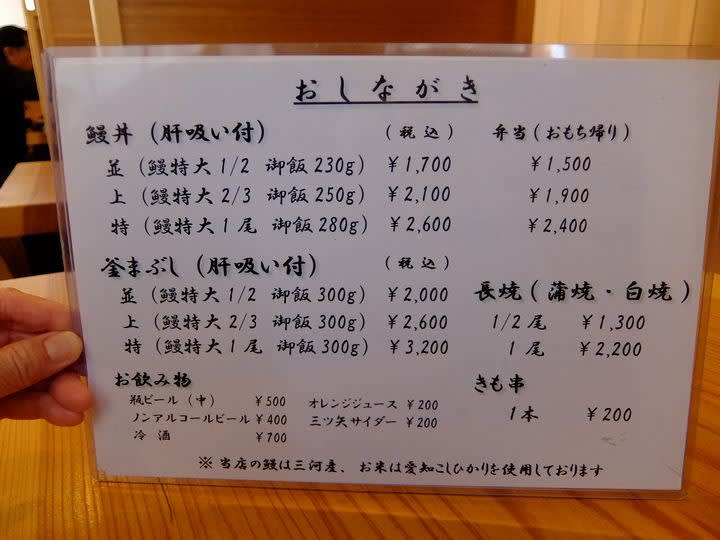 おしながき
鰻丼（肝吸い付） （税込） 弁当（おもち帰り）
並（鰻特大1/2 御飯230g） ¥1,700 ¥1,500
上（鰻特大2/3 御飯250g） ¥2,100 ¥1,900
特（鰻特大1尾 御飯280g） ¥2,600 ¥2,400
釜まぶし（肝吸い付） （税込）
並（鰻特大1/2 御飯300g） ¥2,000
上（鰻特大2/3 御飯300g） ¥2,600
特（鰻特大1尾 御飯300g） ¥3,200
長焼（蒲焼・白焼）
1/2尾 ¥1,300
1尾 ¥2,200
お飲み物
瓶ビール（中） ¥500 オレンジジュース ¥200
ノンアルコールビール ¥400 三ツ矢サイダー ¥200
冷酒 ¥700
きも串
1本 ¥200
※当店の鰻は三河産、お米は愛知こしひかりを使用しております